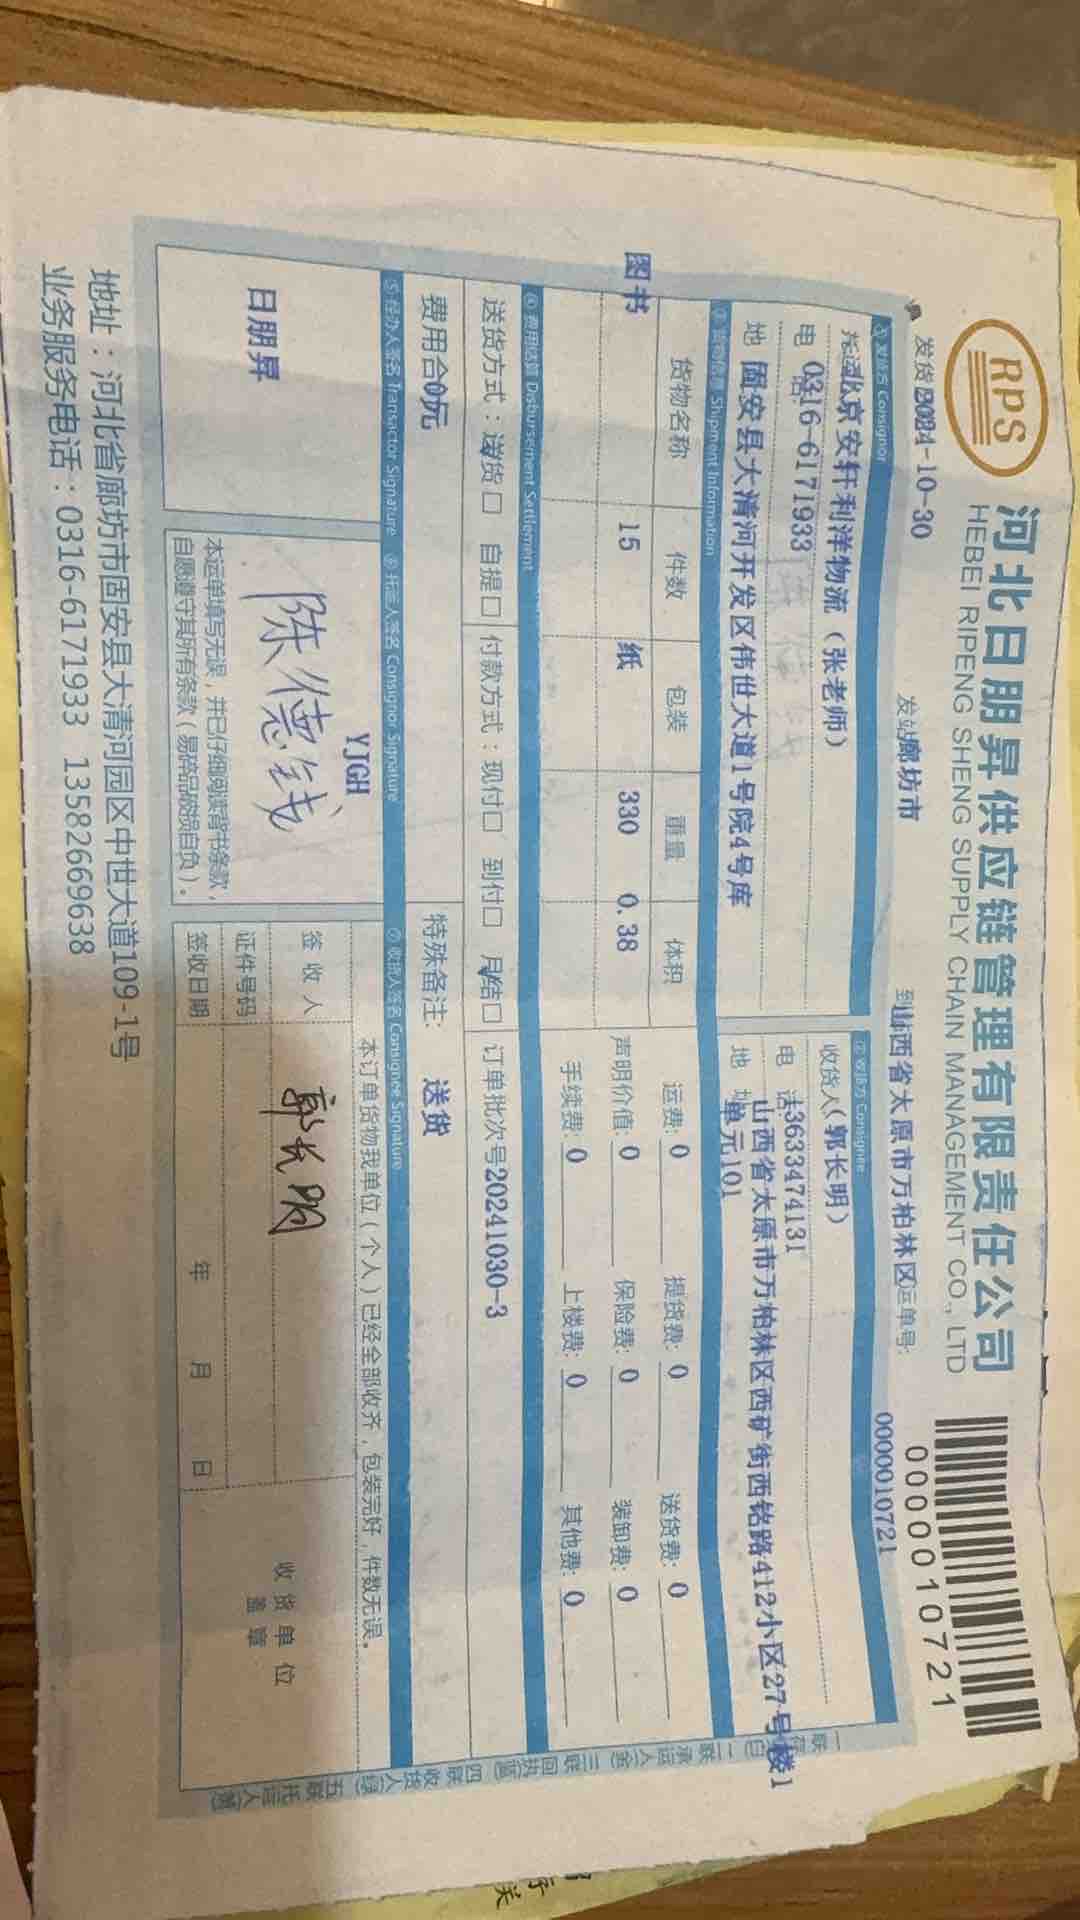 RPS
河北日朋昇供应链管理有限责任公司
HEBEI RIPENG SHENG SUPPLY CHAIN MANAGEMENT CO., LTD
0000010721
发货 2024-10-30
发站廊坊市
到山西省太原市万柏林区
运单号:
0000010721
①发货方 Consignor
②收货方 Consignee
北京安轩利洋物流（张老师）
收货人（郭长明）
电 0316-6171933
电 话13633474131
地 固安县大清河开发区伟世大道1号院4号库
地 址山西省太原市万柏林区西矿街西铭路412小区27号楼1单元101
③货物信息 Shipment Information
货物名称 件数 包装 重量 体积
图书 15 纸 330 0.38
运费: 0 提货费: 0 送货费: 0
声明价值: 0 保险费: 0 装卸费: 0
手续费: 0 上楼费: 0 其他费: 0
④费用结算 Disbursement Settlement
送货方式：送货☐ 自提☐ 付款方式：现付☐ 到付☐ 月结☐ 订单批次号20241030-3
费用合0元
特殊备注: 送货
⑤经办人签名 Transactor Signature
⑥托运人签名 Consignor Signature
⑦收货人签名 Consignee Signature
日朋昇
YJGH
陈德钱
本运单填写无误，并已仔细阅读背书条款，
自愿遵守其所有条款（易碎品破损自负）。
本订单货物我单位（个人）已经全部收齐，包装完好，件数无误。
签收人 郭长明
证件号码
签收日期 年 月 日
收货单位
盖章
地址：河北省廊坊市固安县大清河园区中世大道109-1号
业务服务电话：0316-6171933 13582669638